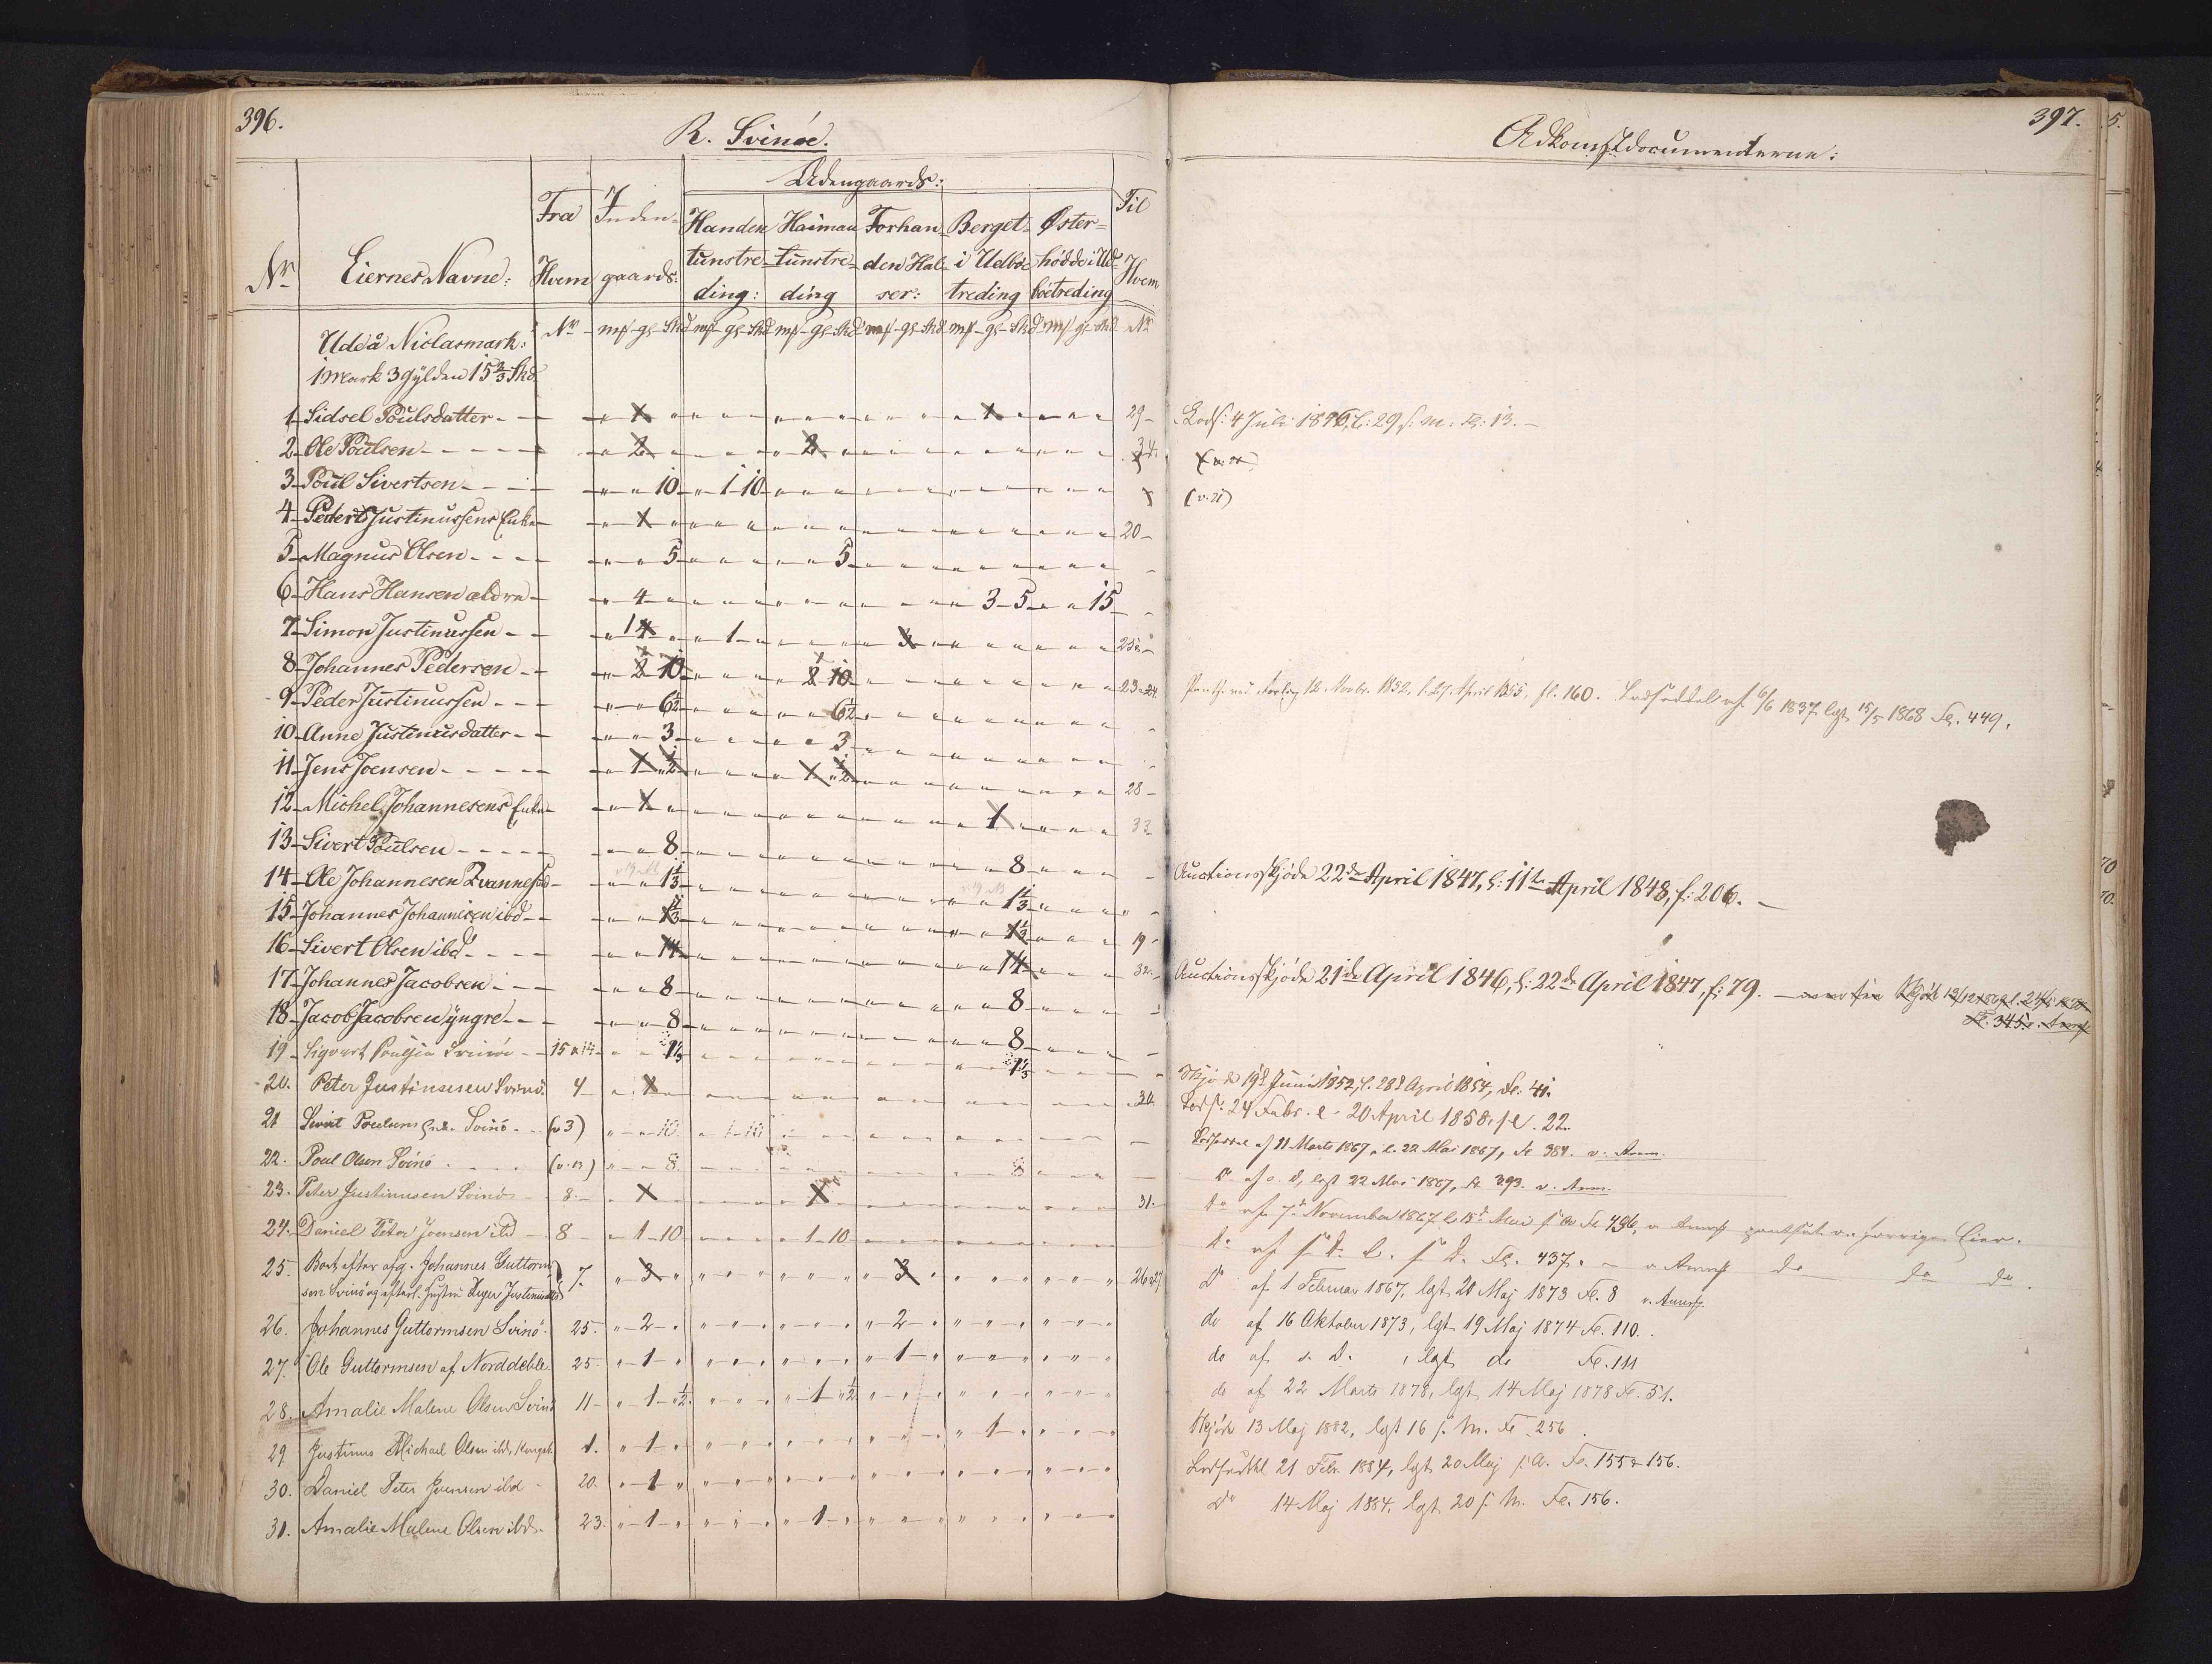 396.
R. Svinøe.
Udengaards:
Nr. Eiernes Navne: Fra Hvem Inden-gaards: Handen tunstre-ding: Haiman tunstre-ding Forhan-den Hal-ser: Berget i Udbø-treding Øster-hødde i Ud-bøetreding Til Hvem
Nr. mk - gl - Skd mk - gl - Skd mk - gl - Skd mk - gl - Skd mk - gl - Skd mk gl Skd Nr.
Udi à Niclasmark:
1 Mark 3 Gylden 15 2/3 Skd.
1 Sidsel Poulsdatter - 1 1 29
2 Ole Poulsen - 2 2 34.
3 Poul Sivertsen - 10 1 10
4 Peder Justinussens Enke 1 20
5 Magnus Olsen - 5 5
6 Hans Hansen ældre - 4 3 5 15
7 Simon Justinussen - 1 3 25
8 Johannes Pedersen - 2 10 2 10 23 24
9 Peder Justinussen - 6 1/2 6 1/2
10 Anne Justinusdatter - 3 3
11 Jens Joensen - 1 1/2 1 1/2 28
12 Michel Johannesens Enke 1 1 33
13 Sivert Poulsen - 8 8
14 Ole Johannesen Qvannesund 1 1/3 1 1/3
15 Johannes Johannesen ibd 1 1/3 1 1/3 19
16 Sivert Olsen ibd 14 14 32
17 Johannes Jacobsen - 8 8
18 Jacob Jacobsen yngre - 8 8
19 Sigvert Svinöe 15 1 1/3 1 1/3
20. Peter Justinussen Svinö. 4 1 30.
21 Sivert Poulsens Enke Svinö (v 3) 10 1-10
22. Poul Olsen Svinö (v. 13) 8 8
23. Peter Justinusen Svinö 8. 1 1 31.
24. Daniel Peter Joensen ibd 8 1-10 1-10
25. Boet efter afg. Johannes Guttorm-
sen Svinö og efterl. Hustru Justinusd. 7. 3 3 26
26. Johannes Guttormsen Svinö. 25. 2 2
27. Ole Guttormsen af Norddeble 25. 1 1
28. Amalie Malene Olsen Svinö 11 1 1/2 1 1/2
29 Justinus Michael Olsen ibd. 1. 1 1
30. Daniel Peter Joensen ibd 20. 1
31. Amalie Malene Olsen ibd. 23. 1 1
397.
Adkomstdocumenterne:
4 Juli 1876, l: 29 s. m. Fl: 13.
(v. 21)
12 Novbr. 1852, l. 27 April 1855, fl. 160. af 6/6 1837 lgt. 15/5 1868 Fl. 449.
Auctionsskjøde 22de April 1847, l: 11te April 1848, f: 206.
Auctionsskjøde 21de April 1846, l: 22de April 1847, f: 79. Skjöde
Fl. 345.
Skjöde 19de Juni 1852, l. 28de April 1854, Fl. 41.
24 Febr. l. 20 April 1858, fl. 22.
af 11 Marts 1867, l. 22 Mai 1867, Fl 384. v. Anm.
Do af s. D, lgt 22 Mai 1867, Fl 393. v. Anm.
do af 7de November 1867 l. 15de Mai s. A. Fl 436, v. Anm. forrige Eier.
do af s. D. l. s. D. Fl. 437. v Anm. do do do.
Do af 1 Februar 1867, lgt. 20 Maj 1873 Fl. 8 v. Anm.
do af 16 Oktober 1873, lgt 19 Maj 1874 Fl. 110.
do af s. D. , lgt do Fl. 111
do af 22 Marts 1878, lgt 14 Maj 1878 Fl. 51.
Skjöde 13 Maj 1882, lgt 16 s. M. Fl 256.
21 Febr. 1884, lgt 20 Maj s. A. Fl. 155 & 156.
Do 14 Maj 1884, lgt 20 s. M. Fl. 156.